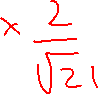 × 2/√21